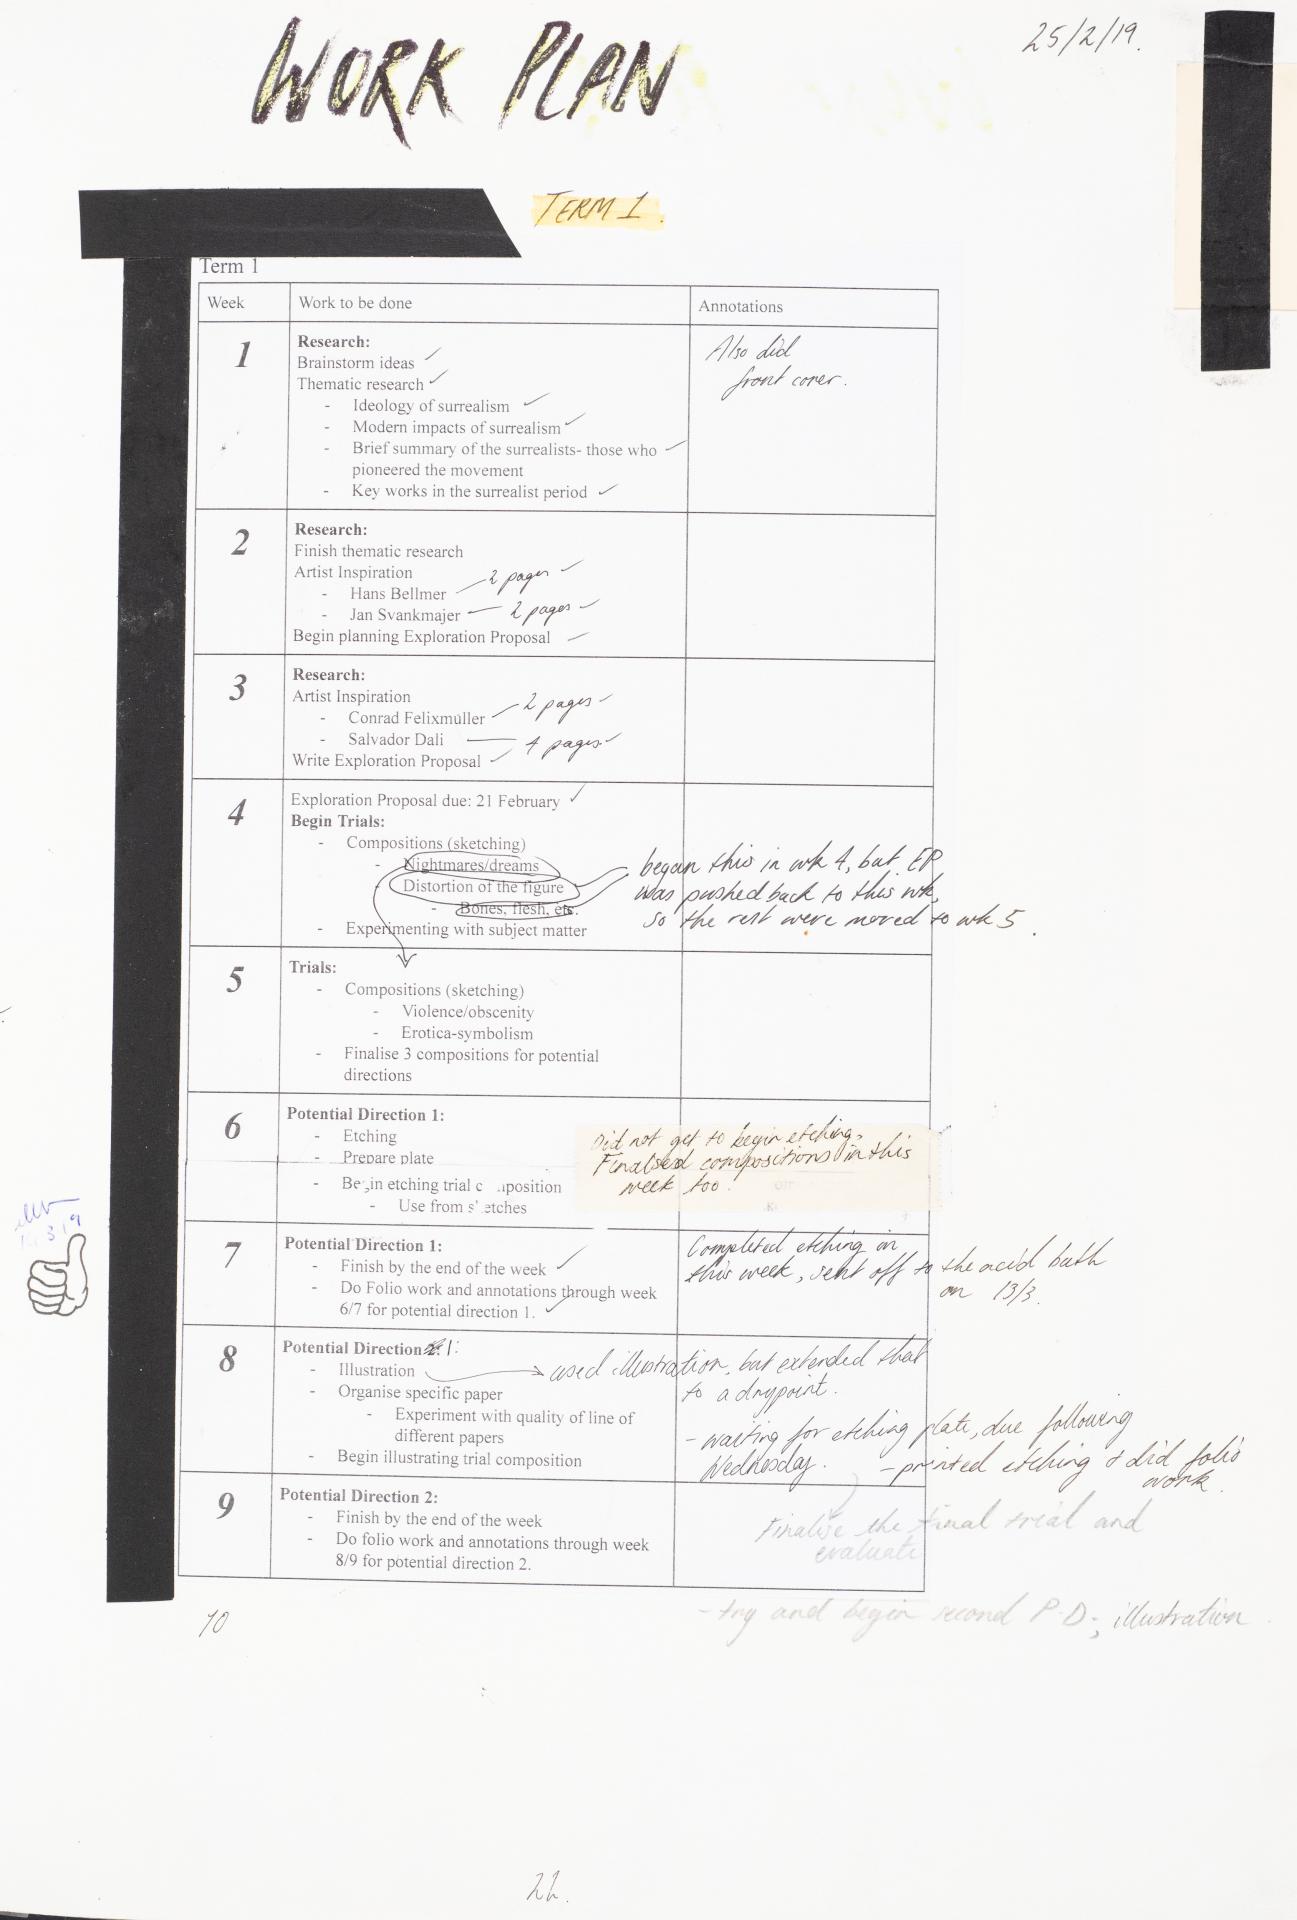 WORK PLAN
25/2/19.
TERM 1.
Term 1
Week
Work to be done
Annotations
1
Research:
Brainstorm ideas
Thematic research
- Ideology of surrealism
- Modern impacts of surrealism
- Brief summary of the surrealists- those who
pioneered the movement
- Key works in the surrealist period
Also did
front cover.
2
Research:
Finish thematic research
Artist Inspiration
- Hans Bellmer 2 pages
- Jan Svankmajer 2 pages
Begin planning Exploration Proposal
3
Research:
Artist Inspiration
- Conrad Felixmuller 2 pages
- Salvador Dali 4 pages
Write Exploration Proposal
4
Exploration Proposal due: 21 February
Begin Trials:
- Compositions (sketching)
- Nightmares/dreams
- Distortion of the figure
- Bones, flesh, etc.
- Experimenting with subject matter
began this in wk 4, but EP
was pushed back to this wk,
so the rest were moved to wk 5.
5
Trials:
- Compositions (sketching)
- Violence/obscenity
- Erotica-symbolism
- Finalise 3 compositions for potential
directions
6
Potential Direction 1:
- Etching
- Prepare plate
- Begin etching trial composition
- Use from sketches
Did not get to begin etching.
Finalised compositions in this
week too.
7
Potential Direction 1:
- Finish by the end of the week
- Do Folio work and annotations through week
6/7 for potential direction 1.
Completed etching in
this week, sent off to the acid bath
on 13/3.
8
Potential Direction 1:
- Illustration
- Organise specific paper
- Experiment with quality of line of
different papers
- Begin illustrating trial composition
used illustration, but extended that
to a drypoint.
- waiting for etching plate, due following
Wednesday.
- printed etching & did folio
work.
9
Potential Direction 2:
- Finish by the end of the week
- Do folio work and annotations through week
8/9 for potential direction 2.
Finalise the final trial and
evaluate
10
- try and begin second P.D; illustration
22.